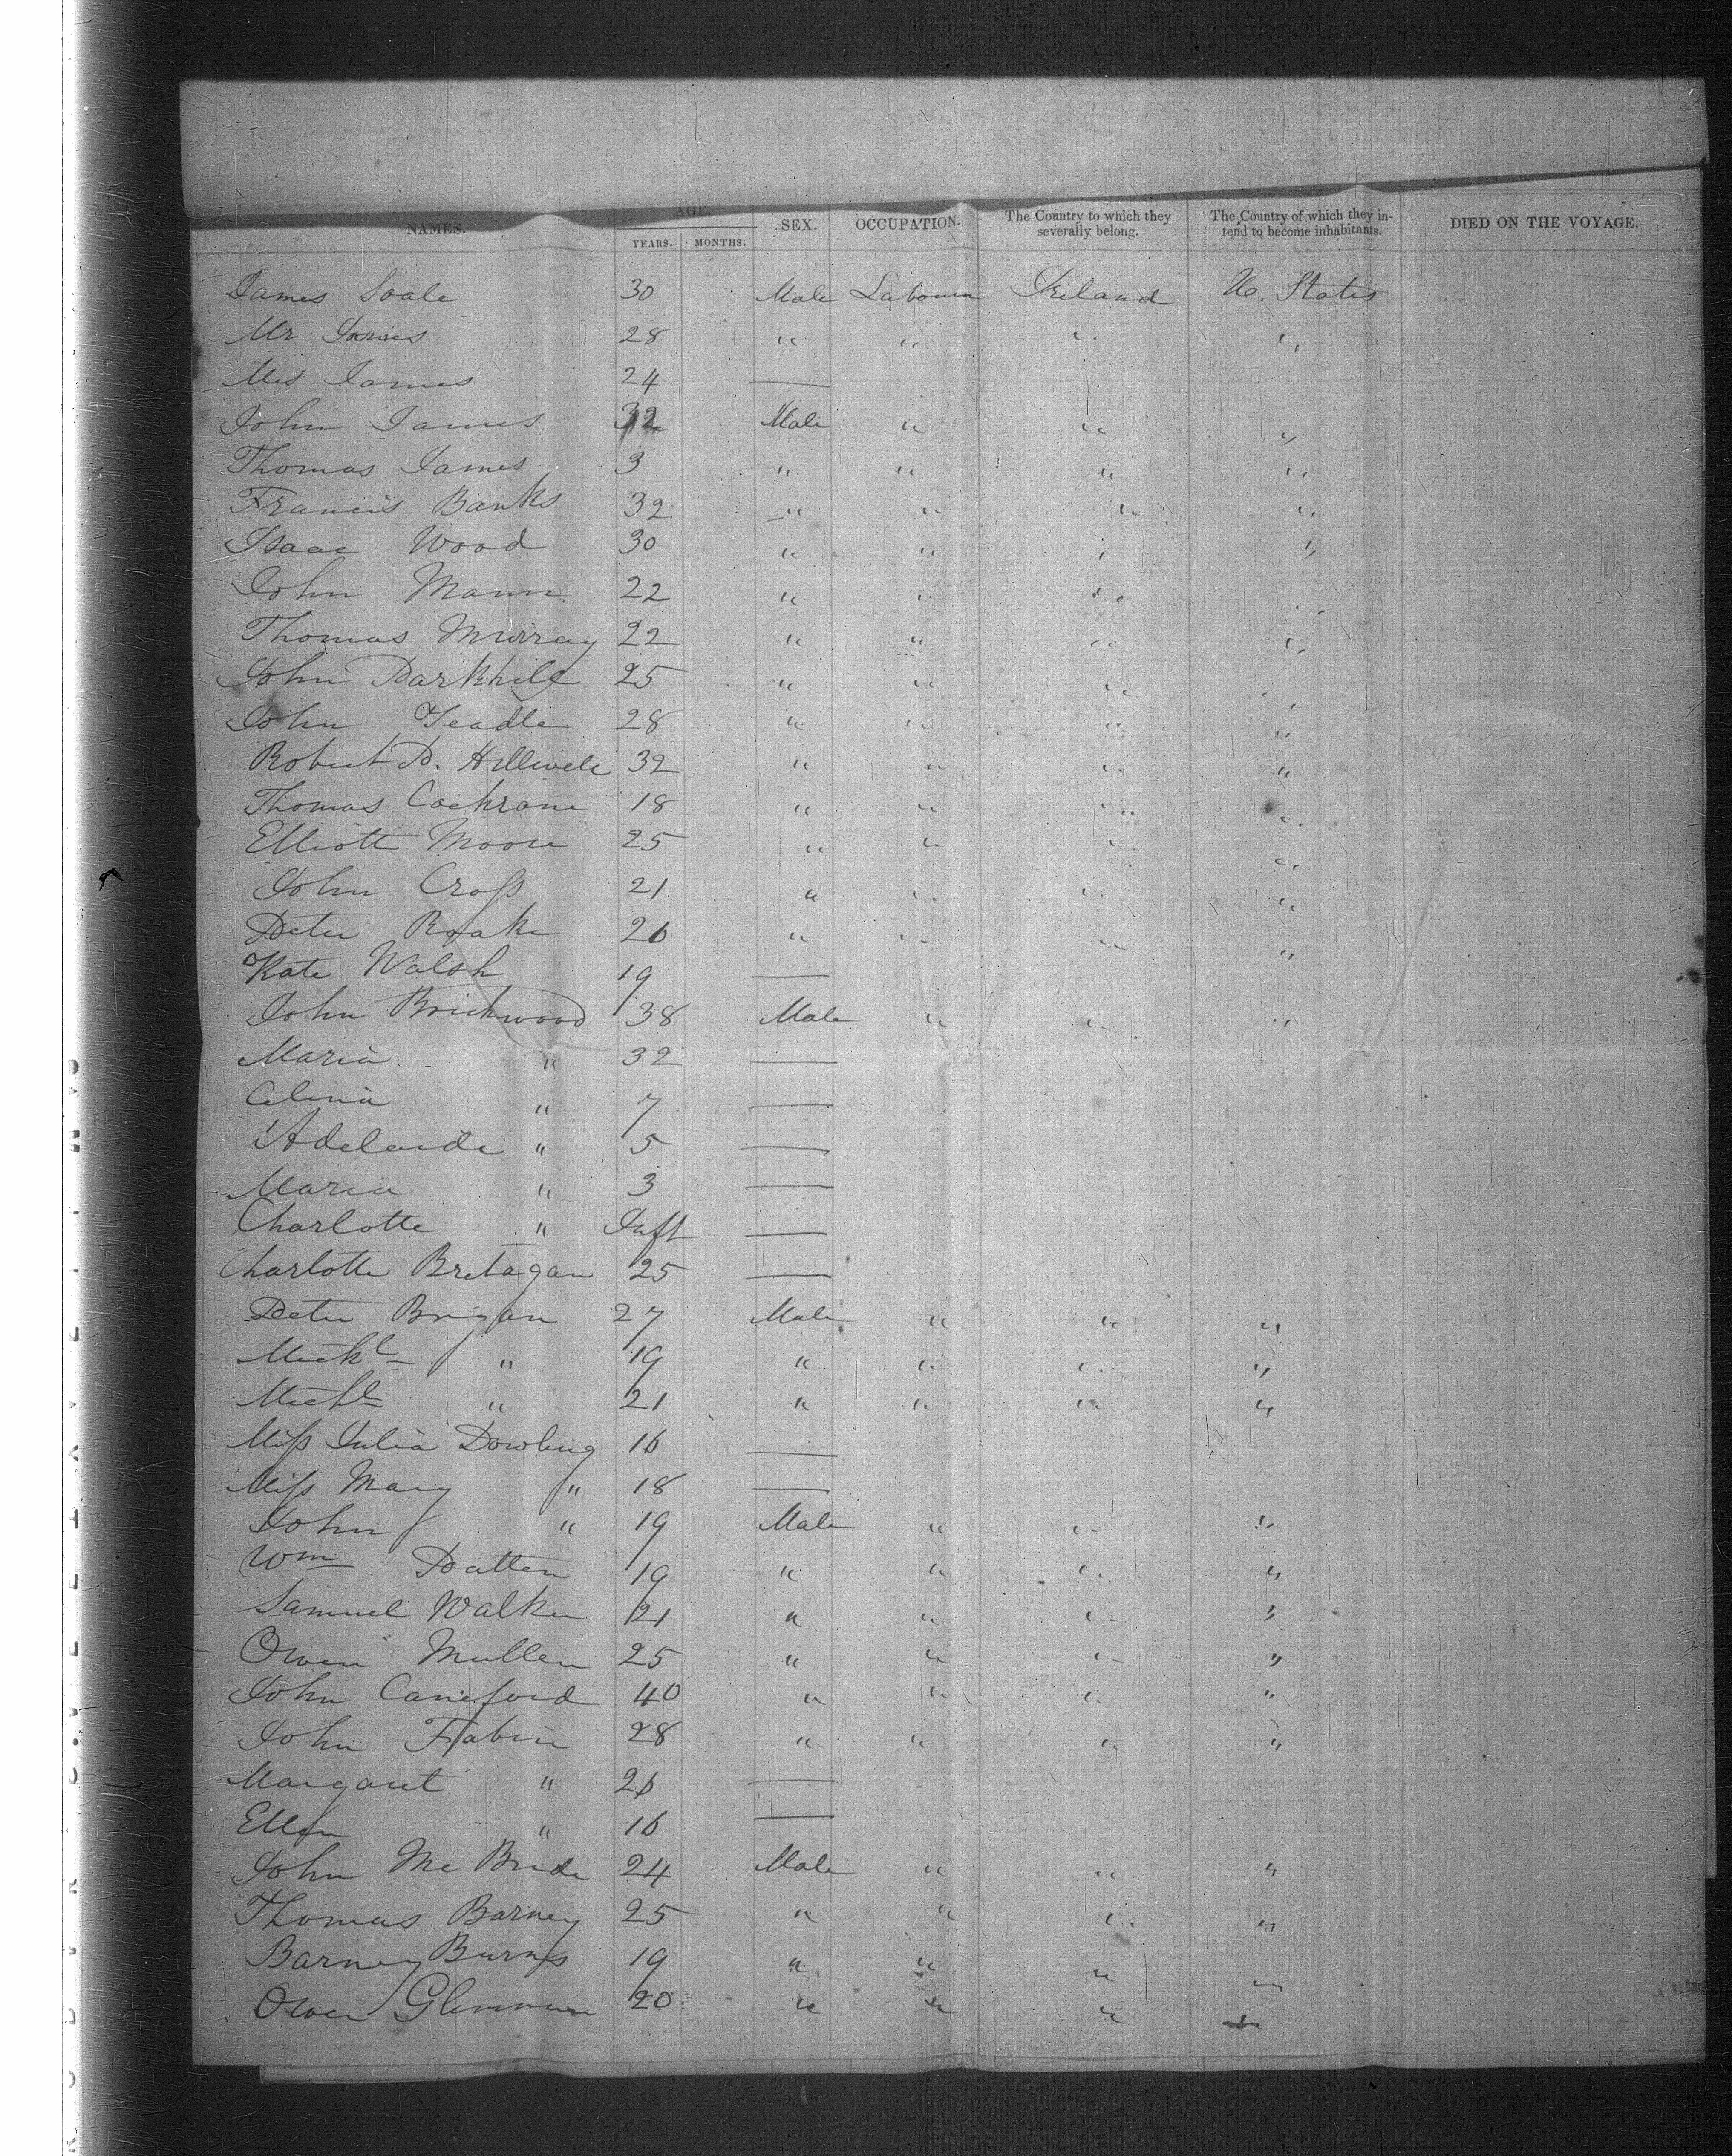 NAMES. AGE. YEARS. MONTHS. SEX. OCCUPATION. The Country to which they severally belong. The Country of which they intend to become inhabitants. DIED ON THE VOYAGE.
James Soale 30 Male Labourer Ireland U. States
Mr James 28 " " " "
Mrs James 24 —
John James 32 Male " " "
Thomas James 3 " " " "
Francis Banks 32 " " " "
Isaac Wood 30 " " " "
John Mann 22 " " " "
Thomas Murray 22 " " " "
John Parkhill 25 " " " "
John Teadle 28 " " " "
Robert D. Hilliwell 32 " " " "
Thomas Cochrane 18 " " " "
Elliott Moore 25 " " " "
John Cross 21 " " " "
Peter Roake 26 " " " "
Kate Walsh 19 —
John Brickwood 38 Male " " "
Maria " 32 —
Celina " 7 —
Adelaide " 5 —
Maria " 3 —
Charlotte " Inft —
Charlotte Bretagan 25 —
Peter Brigan 27 Male " " "
Michl " 19 " " " "
Michl " 21 " " " "
Miss Julia Dowling 16 —
Miss Mary " 18 —
John " 19 Male " " "
Wm Patten 19 " " " "
Samuel Walker 21 " " " "
Owen Mullen 25 " " " "
John Caneford 40 " " " "
John Fabin 28 " " " "
Margaret " 26 —
Ellen " 16 —
John Mc Bride 24 Male " " "
Thomas Barney 25 " " " "
Barney Burns 19 " " " "
Owen 20 " " " "